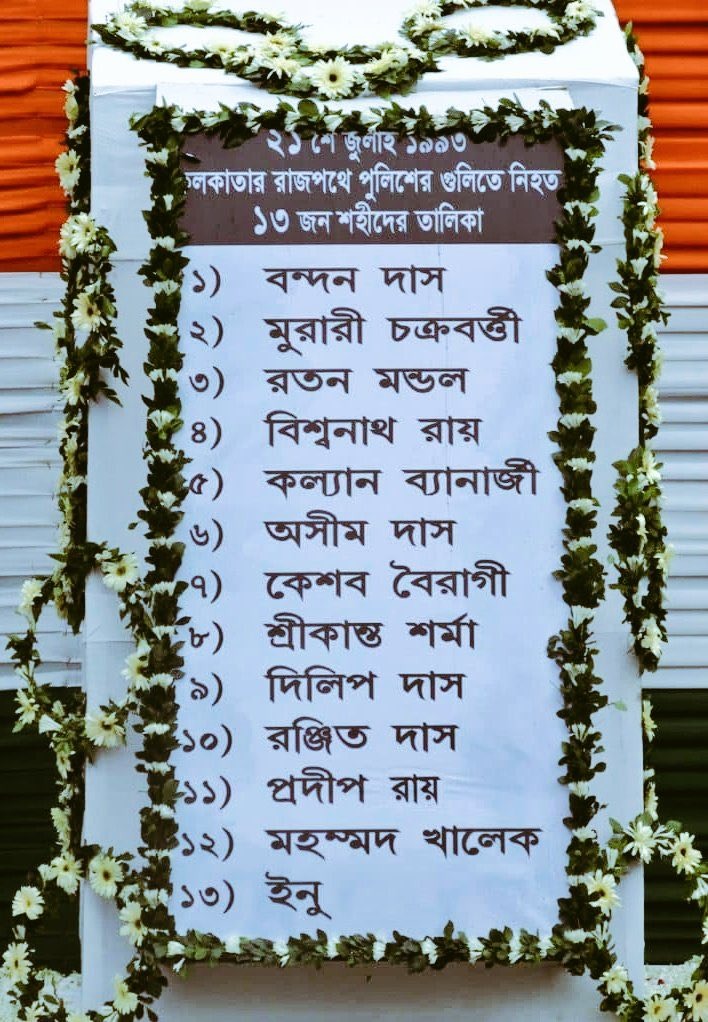 ২১ শে জুলাই ১৯৯৩
কলকাতার রাজপথে পুলিশের গুলিতে নিহত
১৩ জন শহীদের তালিকা
১) বন্দন দাস
২) মুরারী চক্রবর্ত্তী
৩) রতন মন্ডল
৪) বিশ্বনাথ রায়
৫) কল্যান ব্যানার্জী
৬) অসীম দাস
৭) কেশব বৈরাগী
৮) শ্রীকান্ত শর্মা
৯) দিলিপ দাস
১০) রঞ্জিত দাস
১১) প্রদীপ রায়
১২) মহম্মদ খালেক
১৩) ইনু